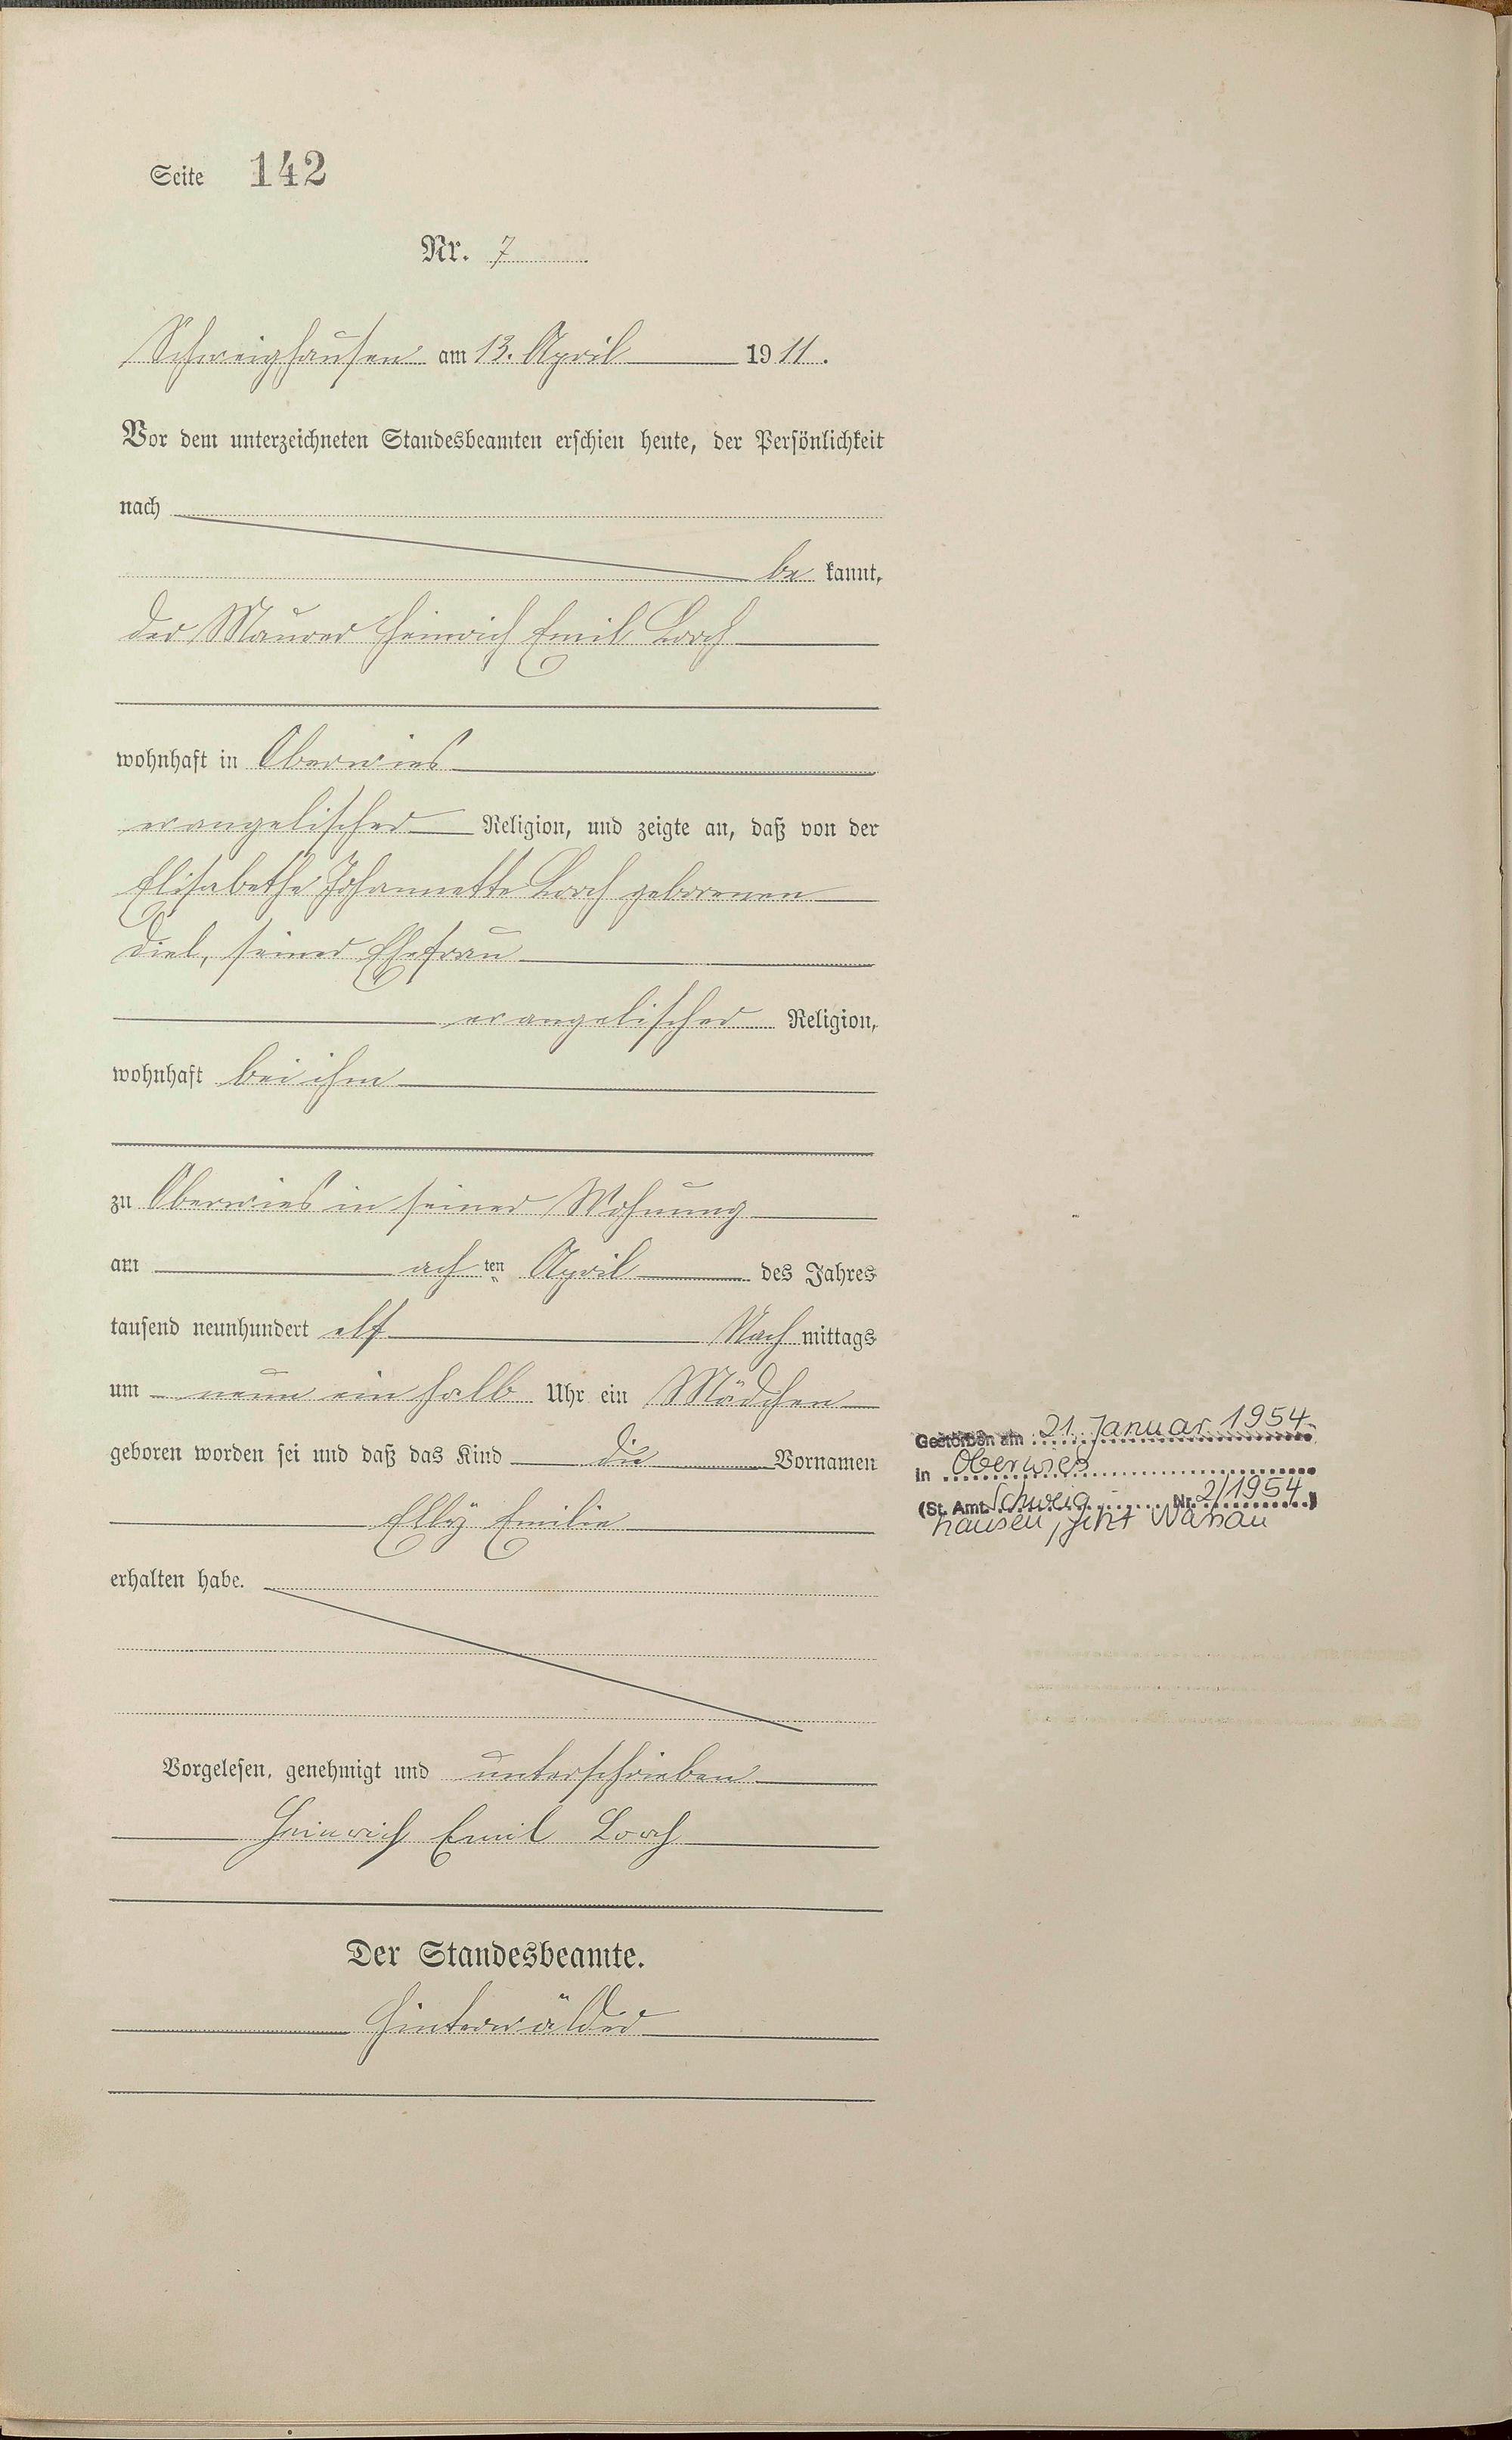 Seite 142
Nr. 7
Schweighausen am 13. April 1911.
Vor dem unterzeichneten Standesbeamten erschien heute, der Persönlichkeit
nach
be kannt,
der Maurer Heinrich Emil Lorch
wohnhaft in Oberwies
evangelischer Religion, und zeigte an, daß von der
Elisabethe Johannette Lorch geborenen
Diel, seiner Ehefrau
evangelischer Religion,
wohnhaft bei ihm
zu Oberwies in seiner Wohnung
am achten April des Jahres
tausend neunhundert elf Nach mittags
um neun ein halb Uhr ein Mädchen
geboren worden sei und daß das Kind die Vornamen
Elly Emilie
erhalten habe.
Vorgelesen, genehmigt und unterschrieben
Heinrich Emil Lorch
Der Standesbeamte.
Hinterwälder
Gestorben am 21. Januar 1954
in Oberwies
(St. Amt Schweig Nr. 2/1954)
hausen, jetzt Nassau